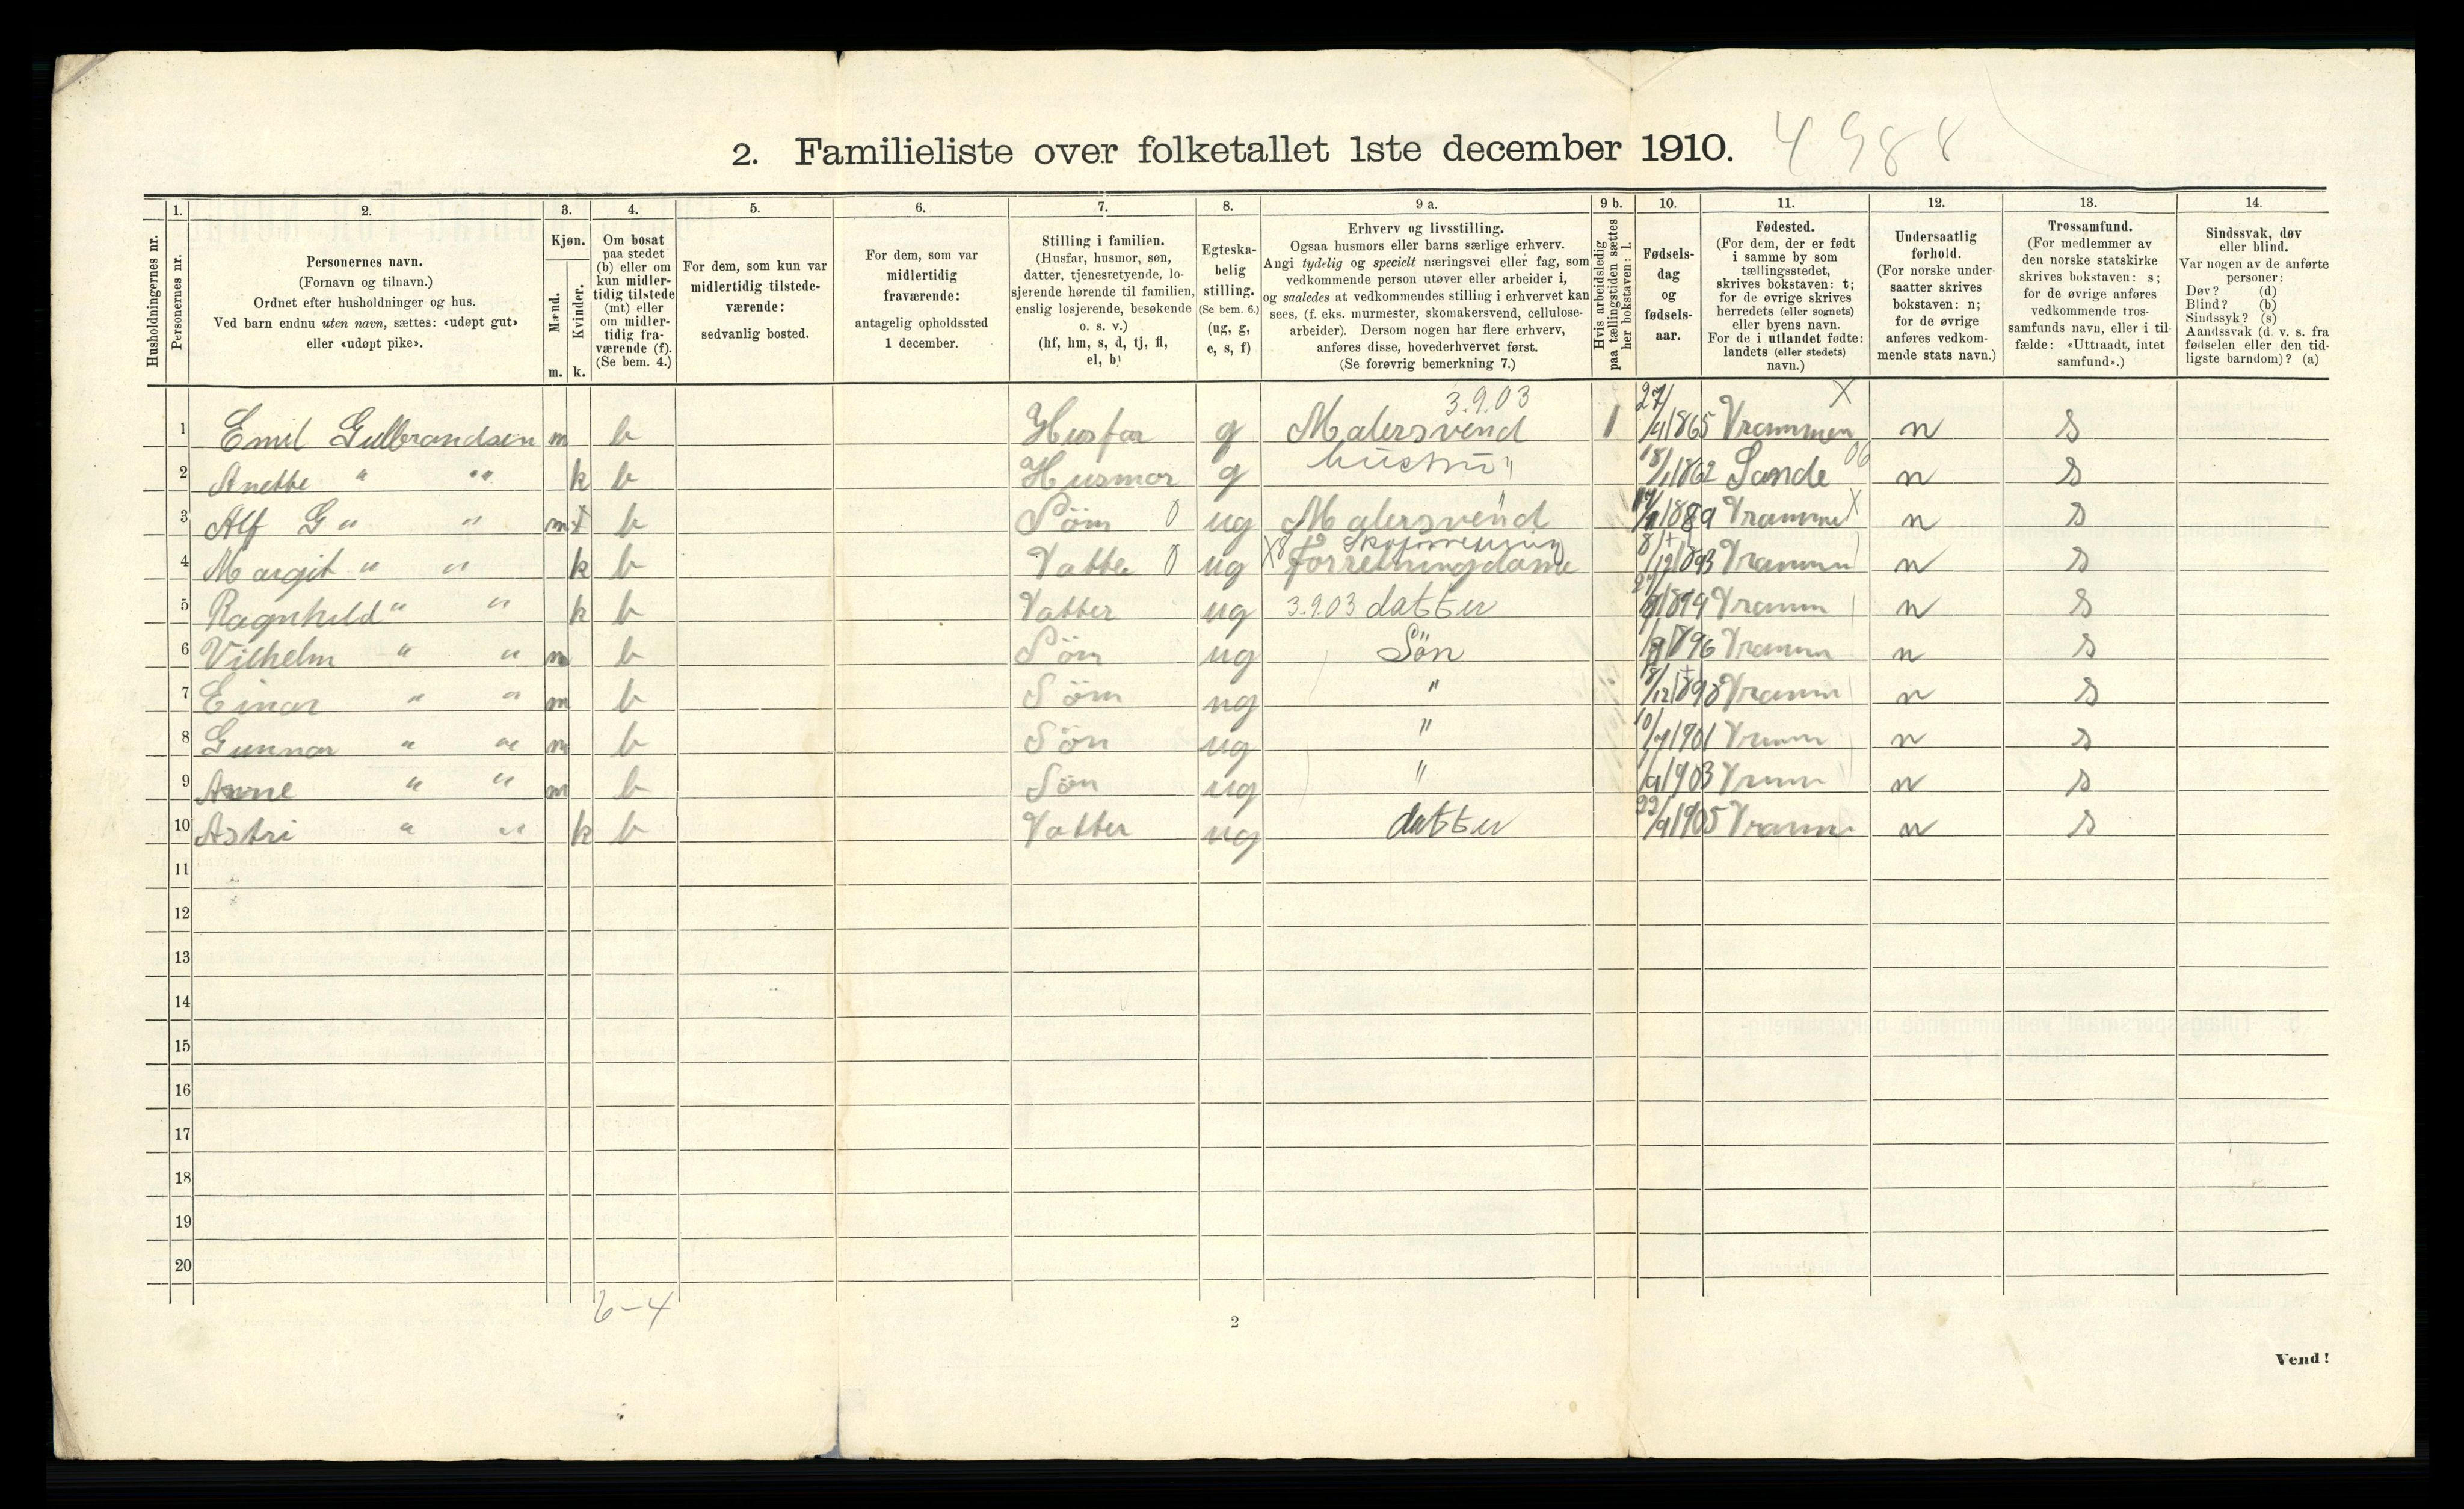 2. Familieliste over folketallet 1ste december 1910. 4988
Husholdningernes nr.
1. Personernes nr.
2. Personernes navn.
(Fornavn og tilnavn.)
Ordnet efter husholdninger og hus.
Ved barn endnu uten navn, sættes: «udøpt gut»
eller «udøpt pike».
3. Kjøn.
Mænd. m.
Kvinder. k.
4. Om bosat
paa stedet
(b) eller om
kun midler-
tidig tilstede
(mt) eller
om midler-
tidig fra-
værende (f).
(Se bem. 4.)
5. For dem, som kun var
midlertidig tilstede-
værende:
sedvanlig bosted.
6. For dem, som var
midlertidig
fraværende:
antagelig opholdssted
1 december.
7. Stilling i familien.
(Husfar, husmor, søn,
datter, tjenestetyende, lo-
sjerende hørende til familien,
enslig losjerende, besøkende
o. s. v.)
(hf, hm, s, d, tj, fl,
el, b)
8. Egteska-
belig
stilling.
(Se bem. 6.)
(ug, g,
e, s, f)
9 a. Erhverv og livsstilling.
Ogsaa husmors eller barns særlige erhverv.
Angi tydelig og specielt næringsvei eller fag, som
vedkommende person utøver eller arbeider i,
og saaledes at vedkommendes stilling i erhvervet kan
sees, (f. eks. murmester, skomakersvend, cellulose-
arbeider). Dersom nogen har flere erhverv,
anføres disse, hovederhvervet først.
(Se forøvrig bemerkning 7.)
9 b. Hvis arbeidsledig
paa tællingstiden sættes
her bokstaven: l.
10. Fødsels-
dag
og
fødsels-
aar.
11. Fødested.
(For dem, der er født
i samme by som
tællingsstedet,
skrives bokstaven: t;
for de øvrige skrives
herredets (eller sognets)
eller byens navn.
For de i utlandet fødte:
landets (eller stedets)
navn.)
12. Undersaatlig
forhold.
(For norske under-
saatter skrives
bokstaven: n;
for de øvrige
anføres vedkom-
mende stats navn.)
13. Trossamfund.
(For medlemmer av
den norske statskirke
skrives bokstaven: s;
for de øvrige anføres
vedkommende tros-
samfunds navn, eller i til-
fælde: «Uttraadt, intet
samfund».)
14. Sindssvak, døv
eller blind.
Var nogen av de anførte
personer:
Døv? (d)
Blind? (b)
Sindssyk? (s)
Aandssvak (d. v. s. fra
fødselen eller den tid-
ligste barndom)? (a)
3.9.03 X
1 Emil Gulbrandsen m b Husfar g Malersvend l 27/ 1865 Drammen n s
2 Anette " " k b Husmor g hustru " 18/1 1862 Sande 06 n s
3 Alf G " " m b Søm 0 ug Malersvend 1889 Dramme X n s
Skoforretning
4 Margit " " k b Datte 0 ug X8 Forretningdame 8/12 1893 Drammn n s
5 Ragnhild " " k b Datter ug 3.9.03 datter Dramm n s
6 Vilhelm " " m b Søm ug Søn 1896 Dramm n s
7 Einar " " m b Søm ug " 18/12 1898 Dramm n s
8 Gunnar " " m b Søn ug " 10/ 1901 Dramm n s
9 Arne " " m b Søn ug " 1903 Dramm n s
10 Astri " " k b Datter ug datter 22/9 1905 Dramm n s
11
12
13
14
15
16
17
18
19
20
6-4
2
Vend!